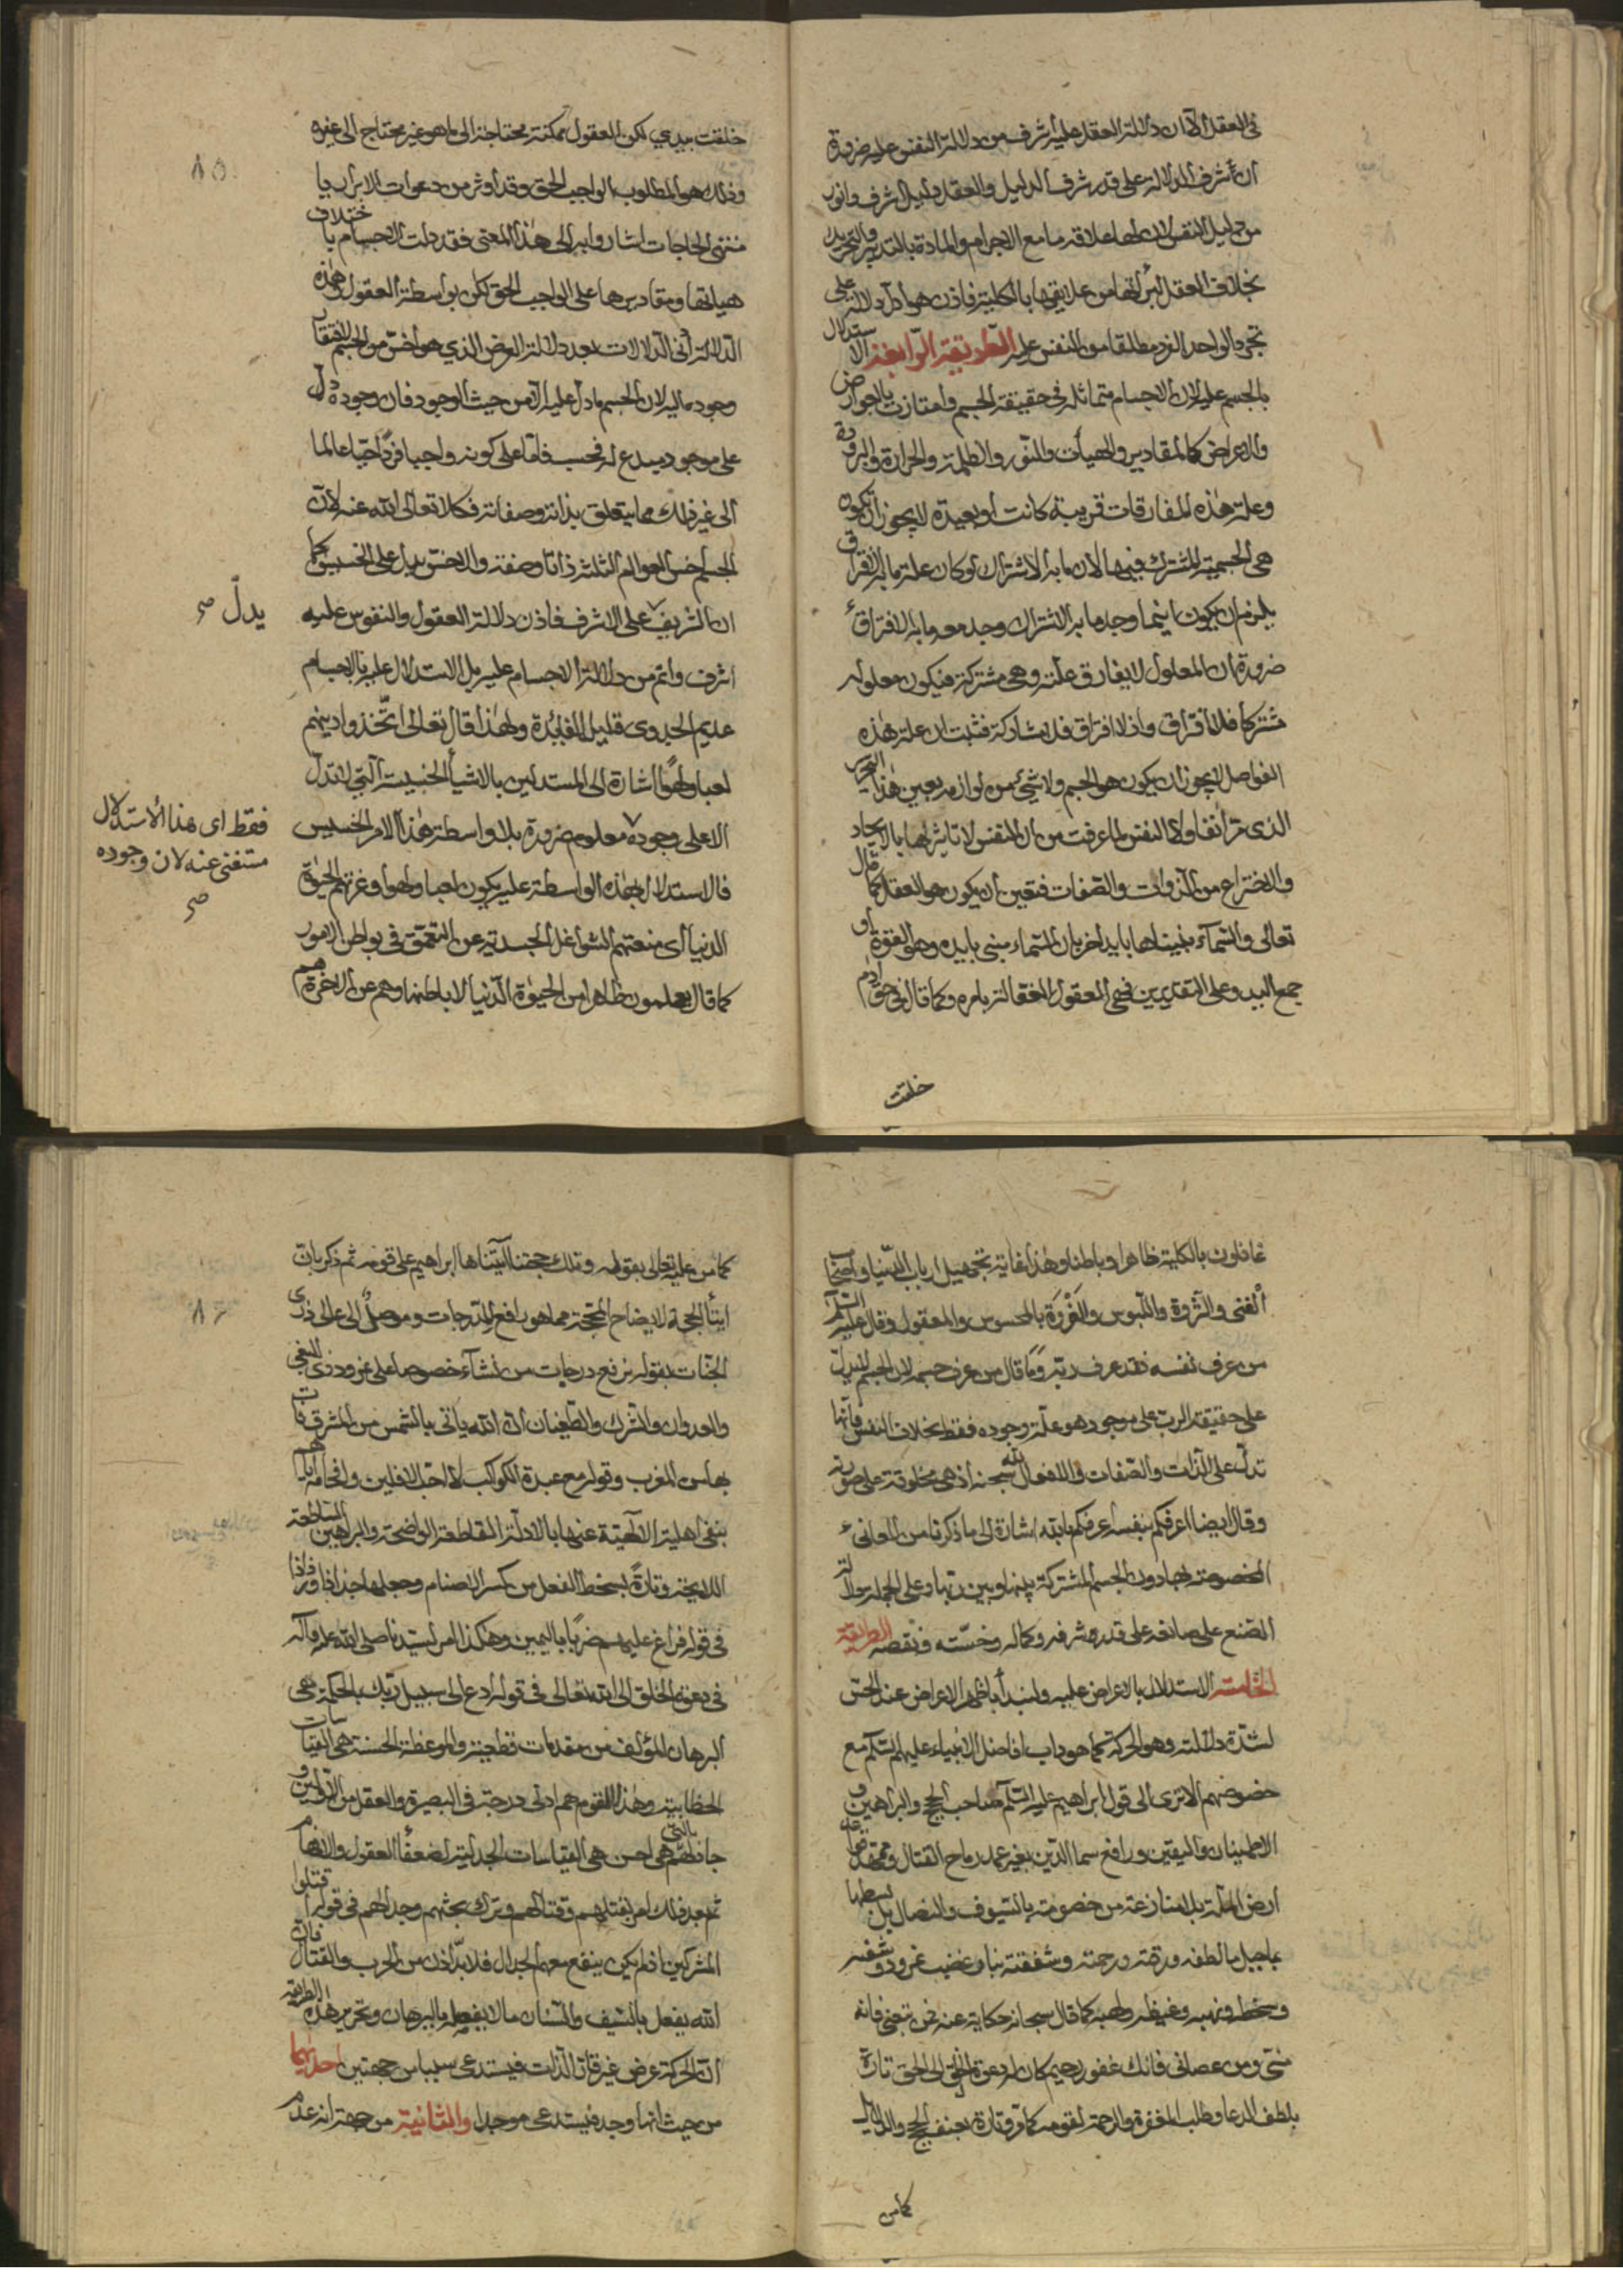 في العقل الا ان دلالة العقل عليه اشرف من دلالة النفس عليه ضرورة
ان اشرف الدلالة على قدر شرف الدليل والعقل دليل اشرف وانور
من دليل النفس لان لها علاقة ما مع الاجرام والمادة بالتدبير والتحريك
بخلاف العقل لبرائتها من علايقها بالكلية فاذن هو ادل دلالة على
تجرد الواحد الفرد مطلقا من النفس عليه الطريقة الرابعة الاستدلال
بالجسم عليه لان الاجسام متماثلة في حقيقة الجسم وامتازت بالعوارض
والاعراض كالمقادير والهيآت والنور والظلمة والحرارة والبرودة
وعلة هذه المفارقات قريبة كانت او بعيدة لا يجوز ان تكون
هي الجسمية المشترك فيها لان ما به الاشتراك لو كان علة ما به الافتراق
يلزم ان يكون اينما وجد ما به الاشتراك وجد معه ما به الافتراق
ضرورة ان المعلول لا يفارق علته وهي مشتركة فيكون معلوله
مشتركا فلا افتراق واذ لا افتراق فلا مشاركة فثبت ان علة هذه
الفواصل لا يجوز ان يكون هو الجسم ولا شيء من لوازمه بعين هذا التحرير
الذي مر آنفا ولا النفس لما عرفت من ان النفس لا تاثير لها بالايجاد
والاختراع من الذوات والصفات فتعين ان يكون هو العقل كما قال
تعالى والسماء بنيناها بايد اخر بان السماء مبنى بايده وهو القوة او
جمع اليد وعلى التقديرين فهي العقول الفعالة بامره وكما قال في حق ادم
خلقت
خلقت بيدي لكن العقول ممكنة محتاجة الى ما هو غير محتاج الى غيره
وذلك هو المطلوب الواجب الحق وقد اوثر من دعوات الابرار يا
منتهى الحاجات اشاروا به الى هذا المعنى فقد دلت الاجسام باختلاف
هياتها ومقاديرها على الواجب الحق لكن بواسطة العقول وهذه
الدلالة ادنى الدلالات بعد دلالة العرض الذي هو اخس من الجسم لافتقار
وجوده اليه لان الجسم ما دل عليه الا من حيث الوجود فان وجوده دل
على موجود مبدع له فحسب فاما على كونه واجبا فردا حيا عالما
الى غير ذلك مما يتعلق بذاته وصفاته فكلا تعالى الله عنه لان
الجسم اخس العوالم الثلثة ذاتا وصفة والاخس يدل على الخسيس كما
ان الشريف على الاشرف فاذن دلالة العقول والنفوس عليه
يدل صح
اشرف واتم من دلالة الاجسام عليه بل الاستدلال عليه بالاجسام
عديم الجدوى قليل الفايدة ولهذا قال تعالى اتخذوا دينهم
لعبا ولهوا اشارة الى المستدلين بالاشيا الخسيسة التي لا تدل
الا على وجوده معلوم ضرورة بلا واسطة هذا الامر الخسيس
فقط اى هذا الاستدلال
مستغنى عنه لان وجوده
صح
فالاستدلال بهذه الواسطة عليه يكون لعبا ولهوا وغرتهم الحيوة
الدنيا اى منعتهم الشواغل الجسدية عن التعمق في بواطن الامور
كما قال يعلمون ظاهرا من الحيوة الدنيا لا باطنها وهم عن الاخرة هم
غافلون بالكلية ظاهرا وباطنا وهذا غاية تجهيل ارباب الدنيا واصحاب
الغنى والثروة واللبوس والفروة بالمحسوس والمعقول وقال عليه السلام
من عرف نفسه فقد عرف ربه وما قال من عرف جسمه لان الجسم لا يدل
على حقيقة الرب على موجود هو علة وجوده فقط بخلاف النفس فانها
تدل على الذات والصفات والافعال لله سبحنه اذ هي مخلوقة على صورته
وقال ايضا اعرفكم بنفسه اعرفكم بربه اشارة الى ما ذكرنا من المعاني
المخصوصة بها دون الجسم المشتركة بينها وبين ربها وعلى الجملة دلالة
الصنع على صانعه على قدر شرفه وكماله وخسته ونقصه الطريقة
الخامسة الاستدلال بالاعراض عليه ولنبدأ باظهر الاعراض عند الحس
لشدة دلالته وهو الحركة كما هو داب افاضل الانبياء عليهم السلم مع
خصومهم الا ترى الى قول ابراهيم عليه السلم صاحب الحجج والبراهين و
الاطمينان واليقين ورافع سما الدين بغير عمد رماح القتال وممهد قواعد
ارض الملة بلا منازعة من خصومته بالسيوف والنصال بل بسطها
بما جبل بها لطفه ورقته ورحمته وشفقته بناو غضب نمرود وشغبه
وسخطه ونهيبه وغيظه ولهبه كما قال سبحانه حكاية عنه فمن تبعني فانه
مني ومن عصاني فانك غفور رحيم كان له دعوة الخلق الى الحق تارة
بلطف الدعا وطلب المغفرة والرحمة لقومه كما مر وتارة بعنف الحجج والدلايل
كما من
كما من عليه تعالى بقوله وتلك حجتنا آتيناها ابراهيم على قومه ثم ذكر بان
ايتاء الحجة لايضاح المحجة مما هو رافع للدرجات وموصل الى عالى ذرى
الجنات بقوله نرفع درجات من نشآء خصوصا على نمرود ذى البغي
والعدوان والشرك والطغيان ان الله ياتى بالشمس من المشرق فات
بها من المغرب وقوله مع عبدة الكواكب لا احب الافلين وافحامه اياهم
بنفى اهلية الالهية عنها بالادلة القاطعة الواضحة والبراهين الساطعة
اللايحة وتارة بسخط الفعل من كسر الاصنام وجعلها جذاذا ورذاذا
في قوله فراغ عليهم ضربا باليمين وهكذا امر لسيدنا صلى الله عليه وآله
في دعوة الخلق الى الله تعالى في قوله ادع الى سبيل ربك بالحكمة هى
البرهان المؤلف من مقدمات قطعية والموعظة الحسنة هي القياسات
الخطابية وهذا لقوم هم ادنى درجة في البصيرة والعقل من الاولين و
جادلهم بالتي هي احسن هي القياسات الجدلية لضعفا العقول والافهام
ثم بعد ذلك امر بقتلهم وقتالهم وترك بحثهم وجدالهم في قوله اقتلوا
المشركين اذ لم يكن ينفع معهم الجدال فلا بد اذن من الحرب والقتال فان
الله يفعل بالسيف والسنان ما لا يفعله بالبرهان وتحرير هذه الطريقة
ان الحركة عرض غير قار الذات فيستدعى سببا من جهتين احديهما
من حيث انها وجد فيستدعى موجدا والثانية من جهة انه عدم